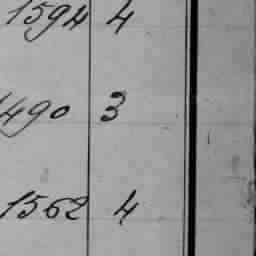 1594 4
1490 3
1562 4